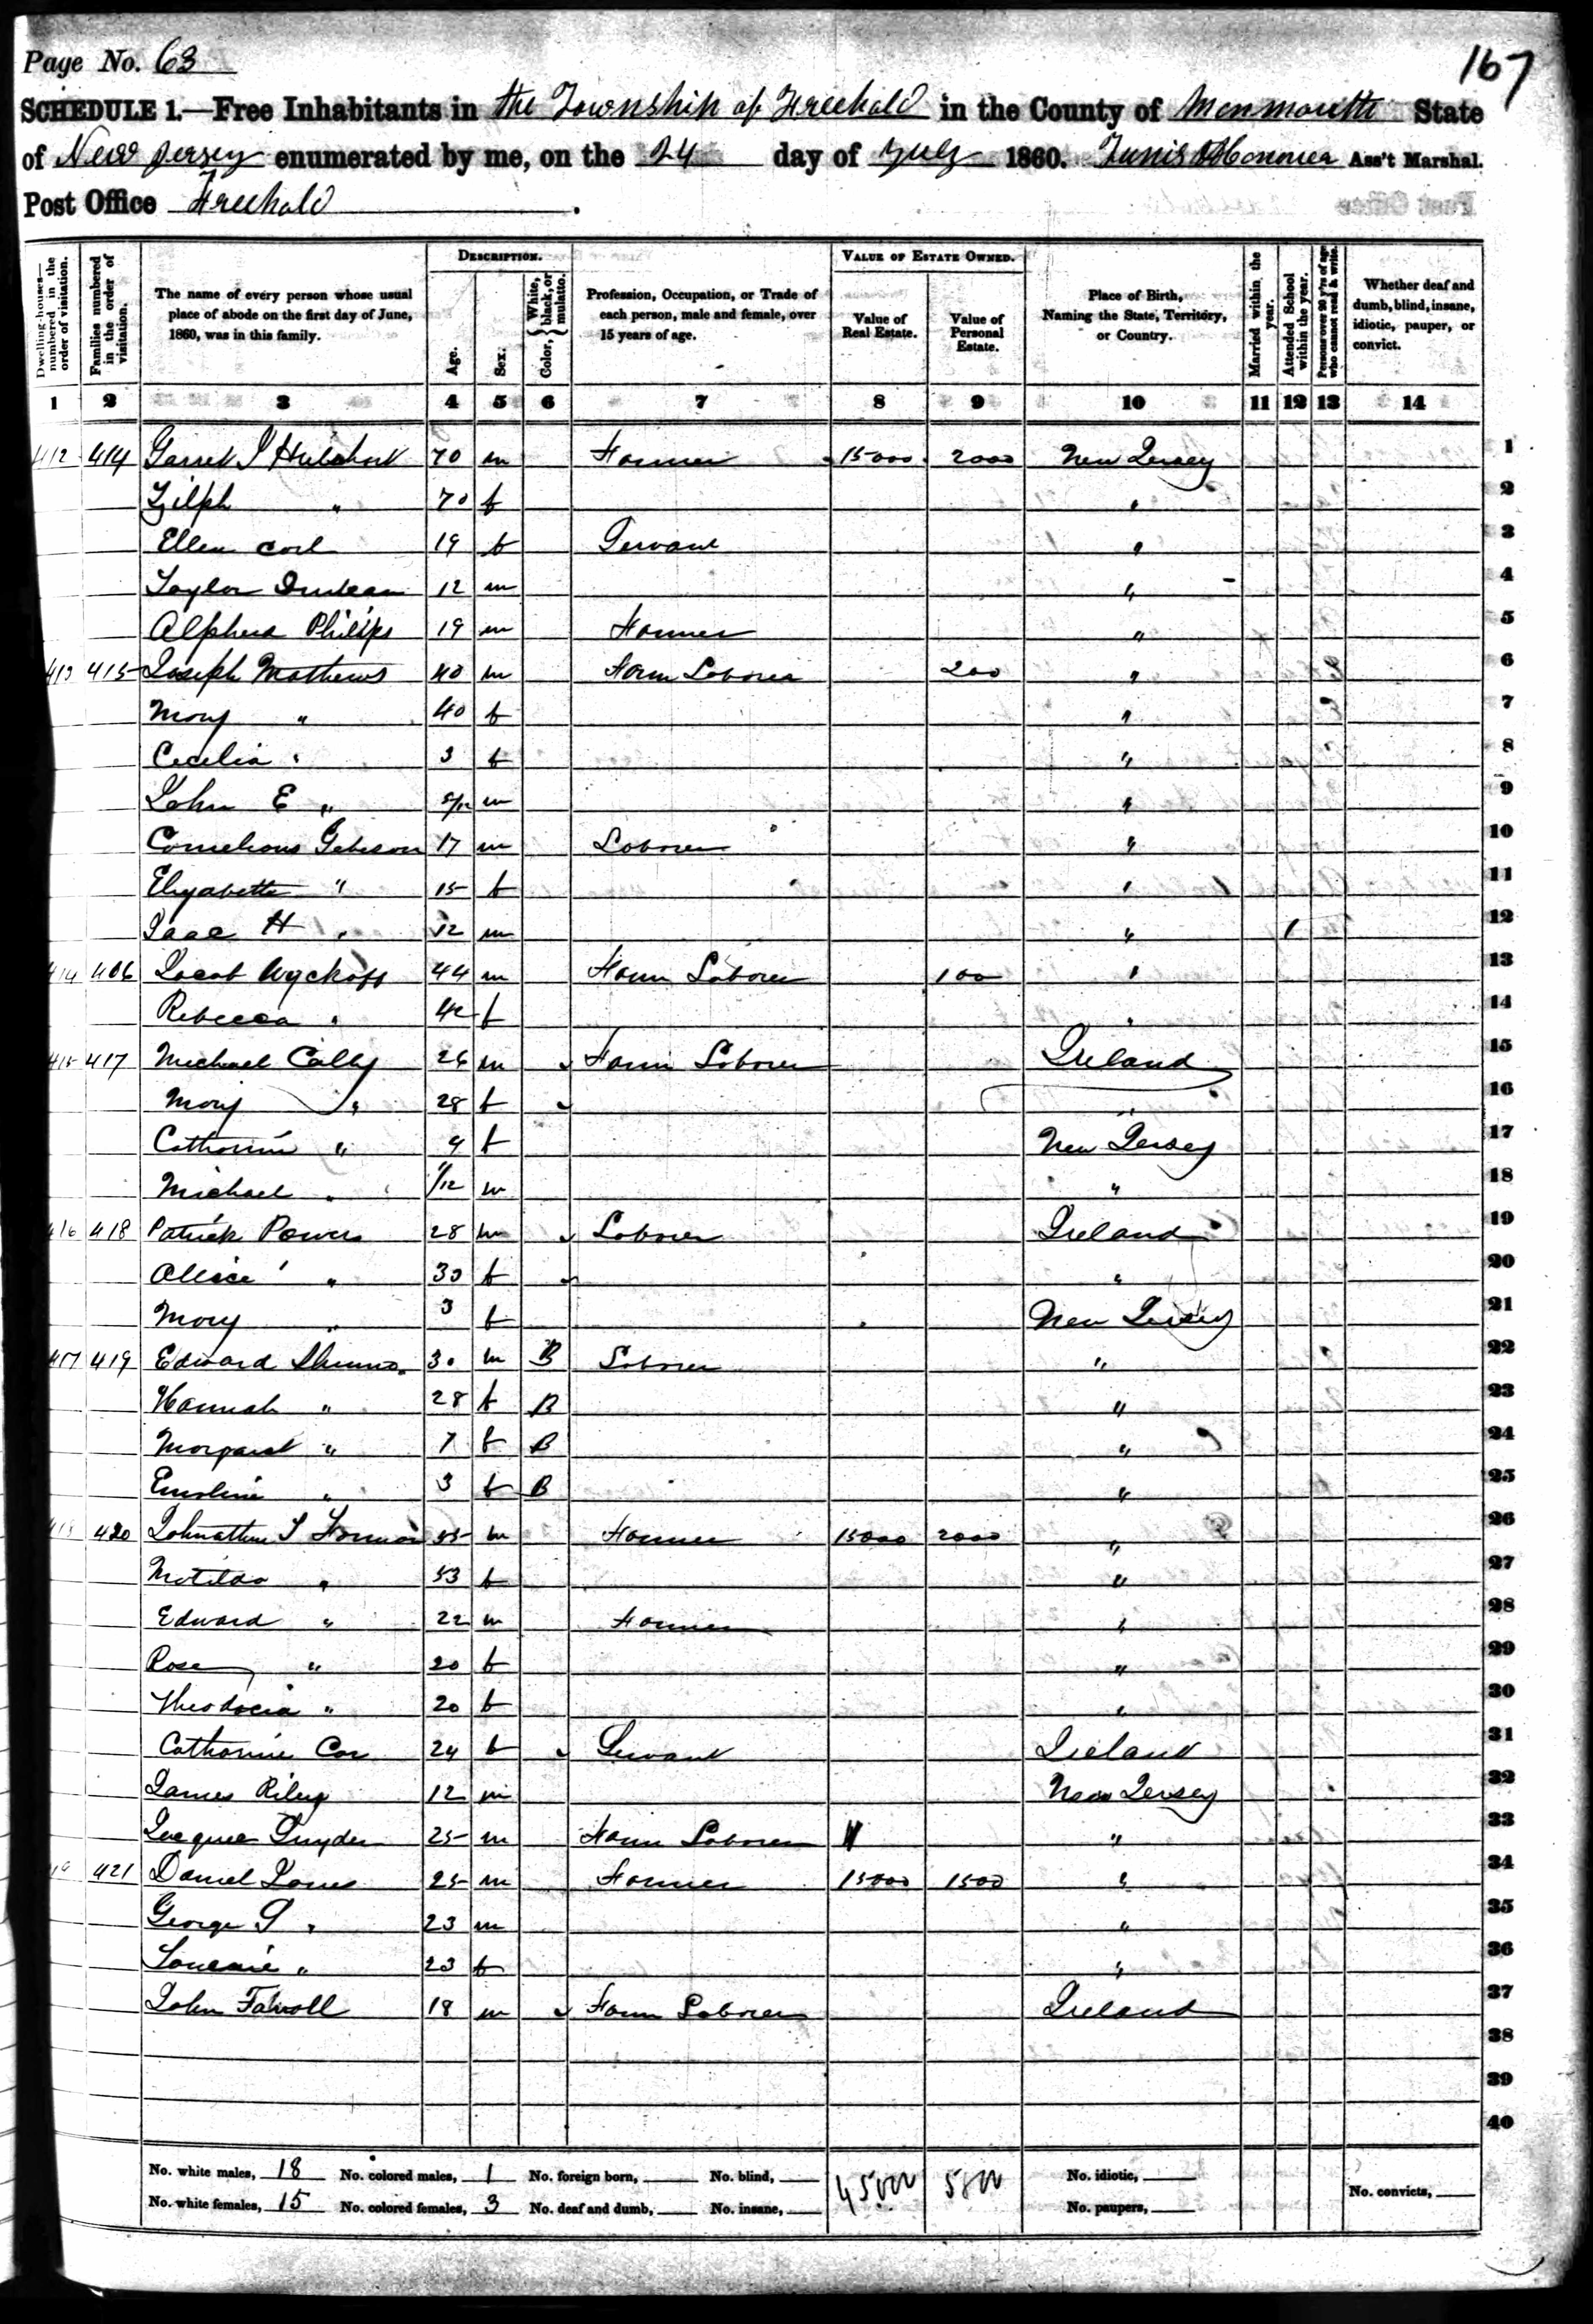 Page No. 63
167
SCHEDULE 1.—Free Inhabitants in the Township of Freehold in the County of Monmouth State
of New Jersey enumerated by me, on the 24 day of July 1860. Tunis Ass't Marshal.
Post Office Freehold.
Dwelling-houses—numbered in the order of visitation.
Families numbered in the order of visitation.
The name of every person whose usual place of abode on the first day of June, 1860, was in this family.
DESCRIPTION.
Age.
Sex.
Color, {White, black, or mulatto.
Profession, Occupation, or Trade of each person, male and female, over 15 years of age.
VALUE OF ESTATE OWNED.
Value of Real Estate.
Value of Personal Estate.
Place of Birth, Naming the State, Territory, or Country.
Married within the year.
Attended School within the year.
Persons over 20 y'rs of age who cannot read & write.
Whether deaf and dumb, blind, insane, idiotic, pauper, or convict.
1 2 3 4 5 6 7 8 9 10 11 12 13 14
412 414 Garret I 70 m Farmer 15000 2000 New Jersey 1
Zilph " 70 f " 2
Ellen 19 f Servant " 3
Taylor 12 m " 4
Alpheus Philips 19 m Farmer " 5
413 415 Joseph Mathews 40 m Farm Laborer 200 " 6
Mary " 40 f " 7
Cecelia " 3 f " 8
John E " 5/12 m " 9
Cornelious Gibeson 17 m Laborer " 10
Elizabeth " 15 f " 11
Isaac H " 12 m " 1 12
414 406 Jacob Wyckoff 44 m Farm Laborer 100 " 13
Rebecca " 42 f " 14
415 417 Michael Cally 26 m Farm Laborer Ireland 15
Mary " 28 f " 16
Catharine " 4 f New Jersey 17
Michael " 1/12 m " 18
416 418 Patrick Powers 28 m Laborer Ireland 19
Allice " 30 f " 20
Mary " 3 f New Jersey 21
417 419 Edward 30 m B Laborer " 22
Hannah " 28 f B " 23
Margaret " 7 f B " 24
Emeline " 3 f B " 25
418 420 Johnathan I Forman 55 m Farmer 15000 2000 " 26
Matilda " 53 f " 27
Edward " 22 m Farmer " 28
Rose " 20 f " 29
Theodocia " 20 f " 30
Catharine 24 f Servant Ireland 31
James Riley 12 m New Jersey 32
Snyder 25 m Farm Laborer " 33
419 421 Daniel 25 m Farmer 15000 1500 " 34
George " 23 m " 35
" 23 f " 36
John Farroll 18 m Farm Laborer Ireland 37
38
39
40
No. white males, 18 No. colored males, 1 No. foreign born, No. blind, 45000 5800 No. idiotic,
No. white females, 15 No. colored females, 3 No. deaf and dumb, No. insane, No. paupers, No. convicts,